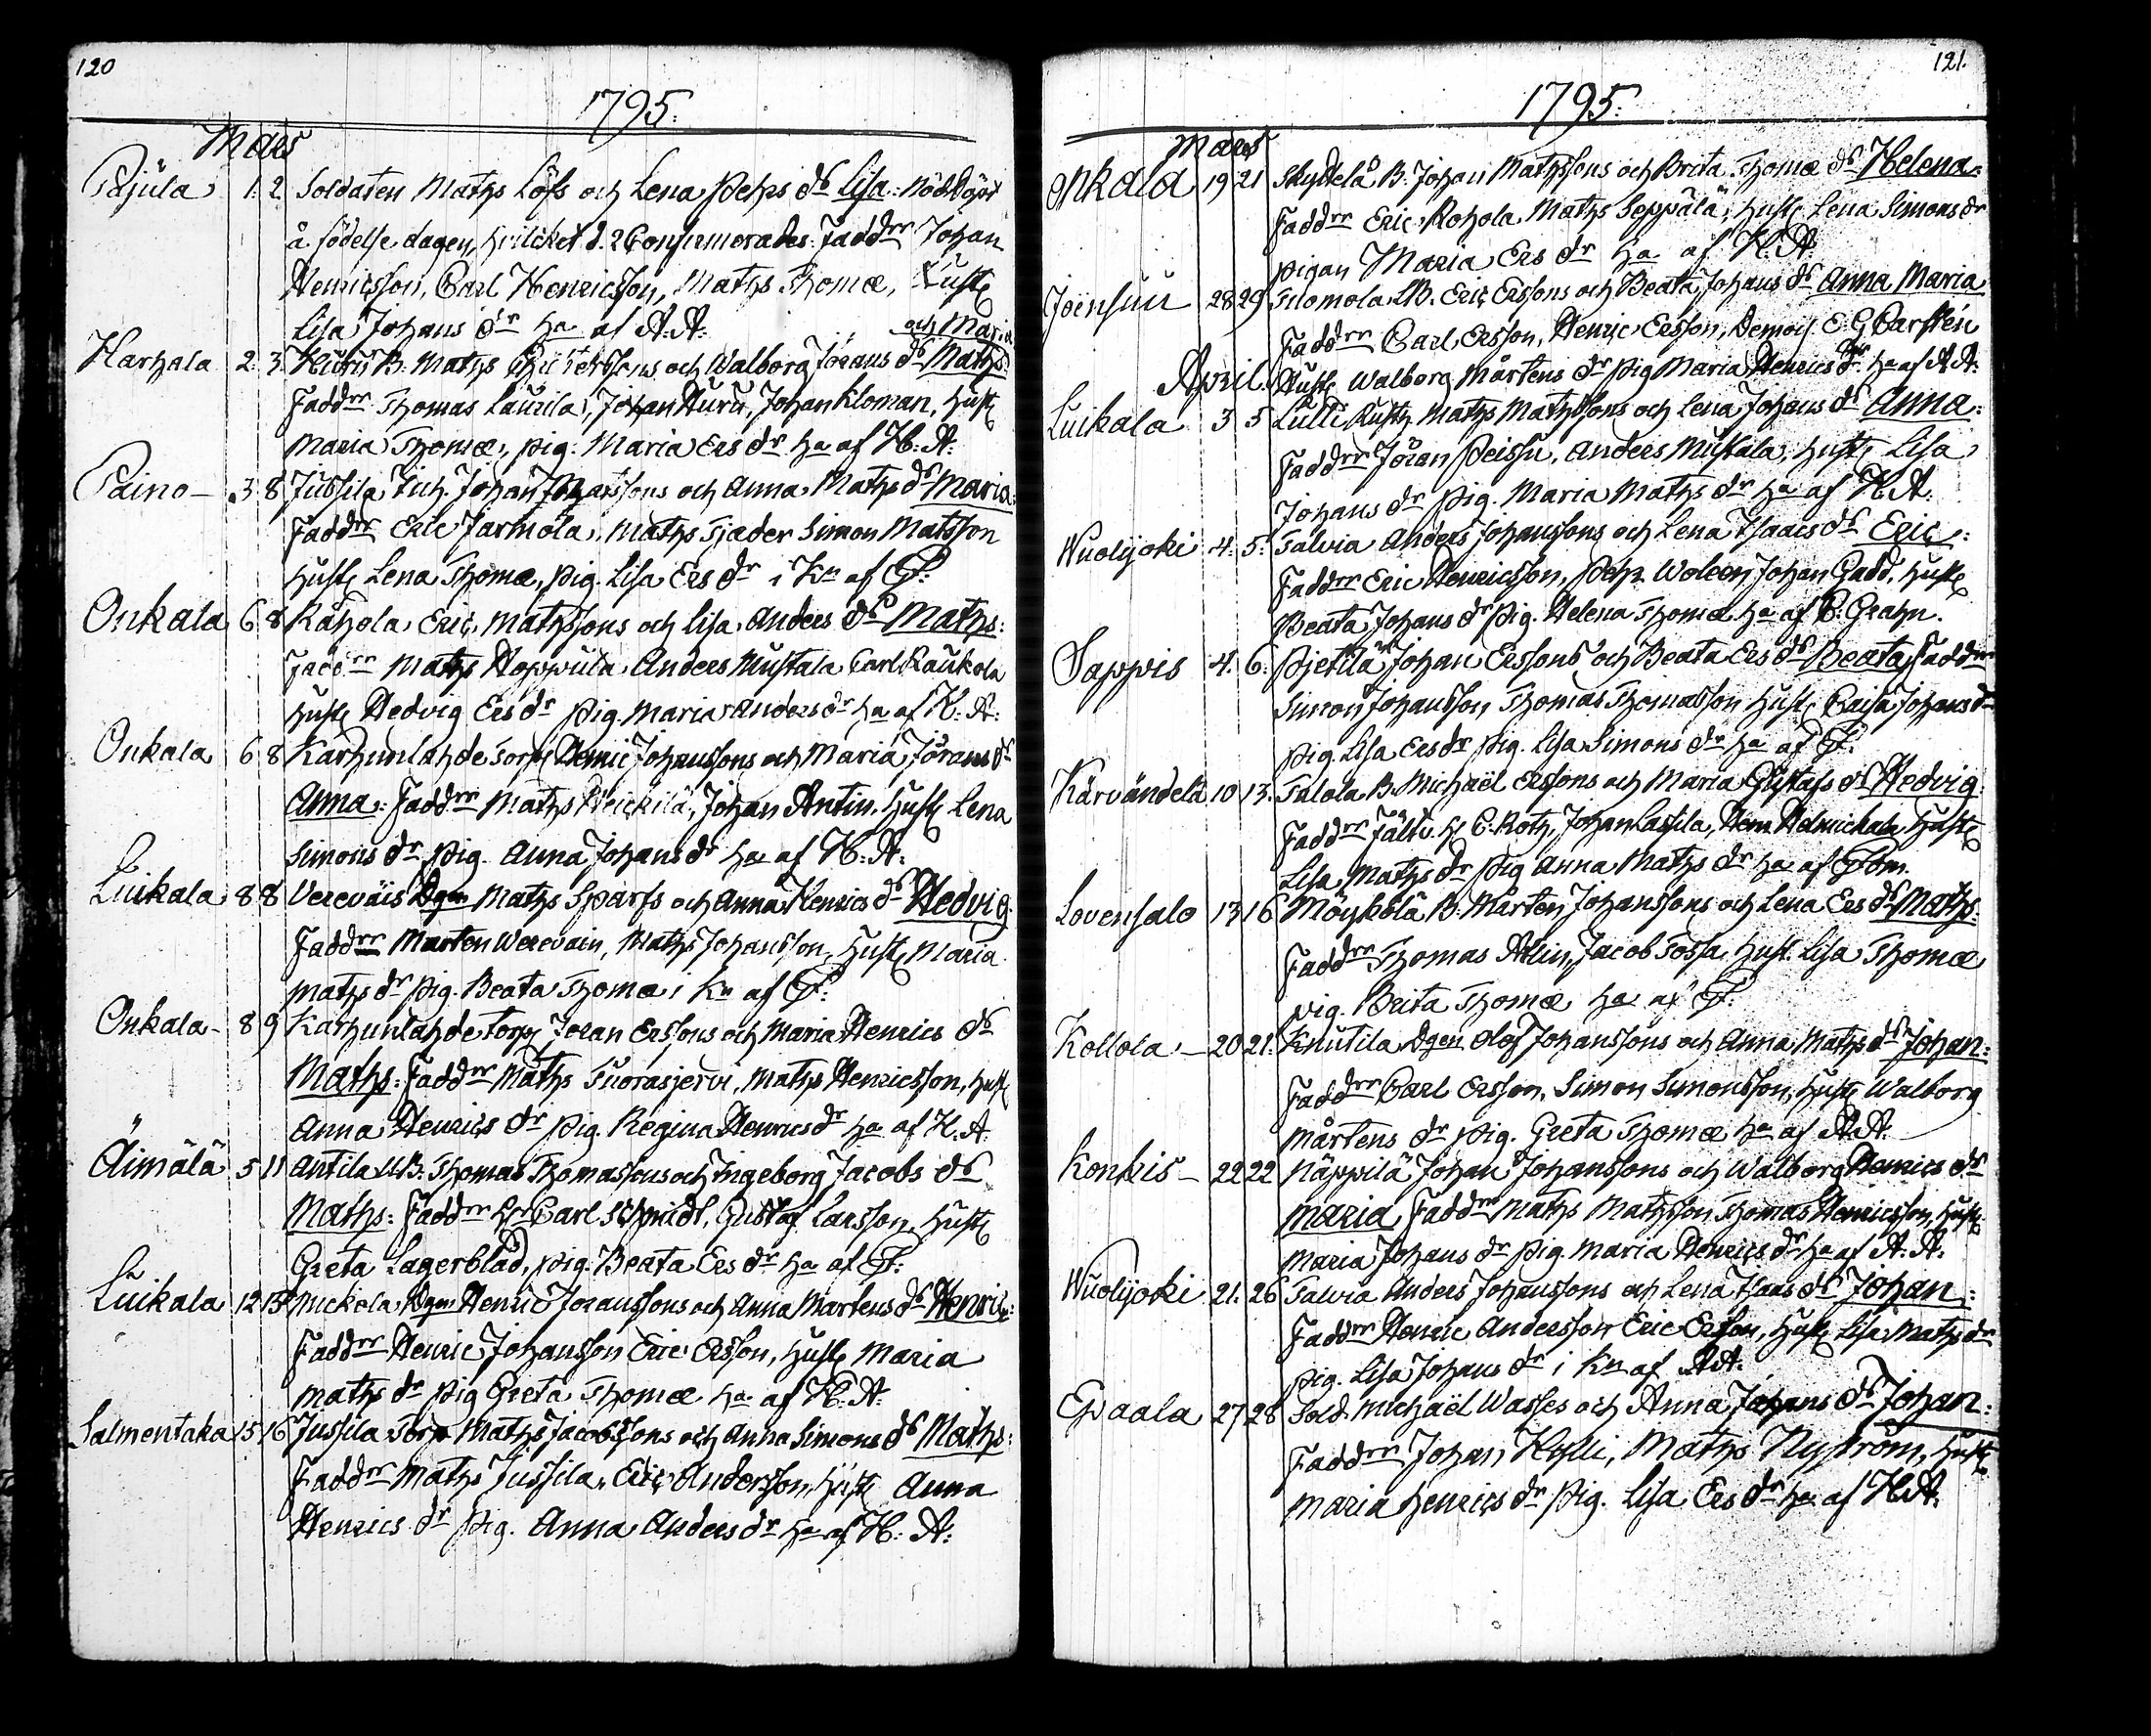 120
1795.
Mars
Pajula 1. 2. Soldaten Maths Löfs och Lena Pehrs ds Lisa: Nöddöpt
å födelse dagen, hvilcket d. 2 Confirmerades. Faddrr Johan
Henricsson, Carl Henricsson, Maths Thomæ, Hust
Lisa Johans dr ha af A. A:
och Maria
Harhala 2. 3. B. Maths och Walborg Jörans ds Maths
Faddrr Thomas Laurila, Johan Huru, Johan Kloman, Hust
Maria Thomæ, pig: Maria Ers dr ha af H: A:
Paino 3 8 Jussila Johan och Anna Maths ds Maria:
Faddrr Eric Jarmola, Maths Tjader Simon Matsson
Hust Lena Thomæ, pig. Lisa Ers dr i Kn af F:
Onkala 6 8 Råhola Eric Mathssons och Lisa Anders ds Maths:
Faddrr Maths Hoppula Anders Mustala Carl Raukola
Hust Hedvig Ers dr pig. Maria Anders dr ha af H: A:
Onkala 6 8 Karhunlahde Torp Henric Johanssons och Maria Jörans ds
Anna: Faddrr Maths Heickilä, Johan Antin. Hust Lena
Simons dr pig. Anna Johans dr ha af H: A:
Luikala 8 8 Vereväis Dgen Maths Sparfs och Anna Henrics ds Hedvig.
Faddrr Mårten Werevain, Maths Johansson, Hust Maria
Maths dr pig. Beata Thomæ i Kn af F:
Onkala 8 9 Karhunlahde Torp Joran Erssons och Maria Henrics ds
Maths: Faddrr Maths Tuorasjervi, Maths Henricsson, Hust
Anna Henrics dr pig. Regina Henrics dr ha af H. A.
Äimälä 5 11 Antila UB. Thomas Thomassons och Ingeborg Jacobs ds
Maths: Faddrr hr Carl Schmidt, Gustaf Larsson, Hust
Greta Lagerblad, pig. Beata Ers dr ha af F:
Luikala 12 15 Mickola Dgen Henric Joranssons och Anna Martens ds Henric:
Faddrr Henric Johansson Eric Ersson, Hust Maria
Maths dr pig Greta Thomæ ha af H: A:
Salmentaka 15 16 Jussila Torp Maths Jacobssons och Anna Simons ds Maths:
Faddrr Maths Jussila, Eric Andersson, Hust Anna
Henrics dr pig. Anna Anders dr ha af H: A:
121.
1795.
Mars
Onkala 19 21 Skyttelä B. Johan Mathssons och Brita Thomæ ds Helena:
Faddrr Eric Rohola Maths Seppälä, Hust Lena Simons dr
pigan Maria Ers dr ha af H. A:
Joensuu 28 29 Tuomola UB. Eric Erssons och Beata Johans ds Anna Maria
Faddrr Carl Ersson, Henric Ersson, Demois. E: G Carstén
April. Hust Walborg Mårtens dr pig Maria Henrics dr ha af A A:
Luikala 3 5 Lulli Rusth Maths Mathssons och Lena Johans ds Anna:
Faddrr Jöran Peissu, Anders Mustala, Hust Lisa
Johans dr pig. Maria Maths dr ha af H. A:
Wuolijoki 4. 5. Talvia Anders Johanssons och Lena Isaacs ds Eric:
Faddrr Eric Henricsson, Pehr Woleen Johan Gadd, Hust
Beata Johans dr pig. Helena Thomæ ha af C. Grahn.
Sappis 4. 6. Pjetilä Johan Erssons och Beata Ers ds Beata Faddrr
Simon Johansson Thomas Thomasson Hust Caisa Johans dr
pig. Lisa Ers dr pig. Lisa Simons dr ha af F:
Kärvändelä 10 13. Talola B. Michaël Erssons och Maria Gustafs ds Hedvig
Faddrr Fältv. H C. Roth, Johan Lassila, Hen Helmickala, Hust
Lisa Maths dr pig Anna Maths dr ha af
Lovensalo 13 16 Möyköla B. Mårten Johanssons och Lena Ers ds Maths:
Faddrr Thomas Jacob Tossa, Hust. Lisa Thomæ
pig. Brita Thomæ ha af F:
Kollola 20 21. Knutila Dgen Olof Johanssons och Anna Maths ds Johan:
Faddrr Carl Ersson, Simon Simonsson, Hust Walborg
Mårtens dr pig. Greta Thomæ ha af A.A.
Konkis 22 22 Näppilä Johan Johanssons och Walborg Henrics ds
Maria Faddrr Maths Mathsson Thomas Henricsson, Hust
Maria Johans dr pig. Maria Henrics dr ha af A. A:
Wuolijoki 21. 26 Talvia Anders Johanssons och Lena Isaas ds Johan:
Faddrr Henric Andersson Eric Ersson, Hust Lisa Maths dr
pig. Lisa Johans dr i Kn af AA:
Epaala 27 28 Sold. Michaël Wasses och Anna Johans ds Johan:
Faddrr Johan Kylli, Maths Nyström, Hust
Maria Henrics dr pig. Lisa Ers dr ha af H.A.